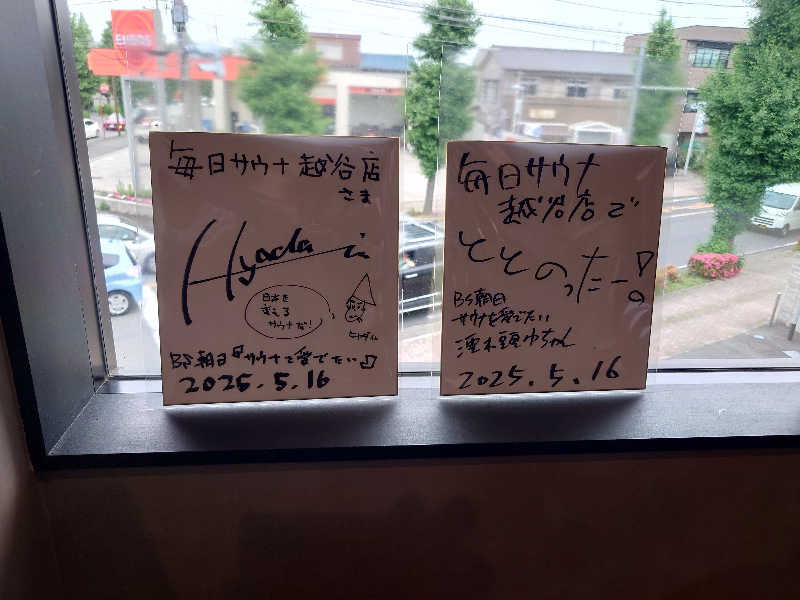 毎日サウナ 越谷店
さま
Hyada
日本を
変える
サウナだ!
ヒャダイン
BS朝日『サウナを愛でたい』
2025.5.16
毎日サウナ
越谷店で
ととのったー!
BS朝日
サウナを愛でたい
清水みさとちゃん
2025.5.16